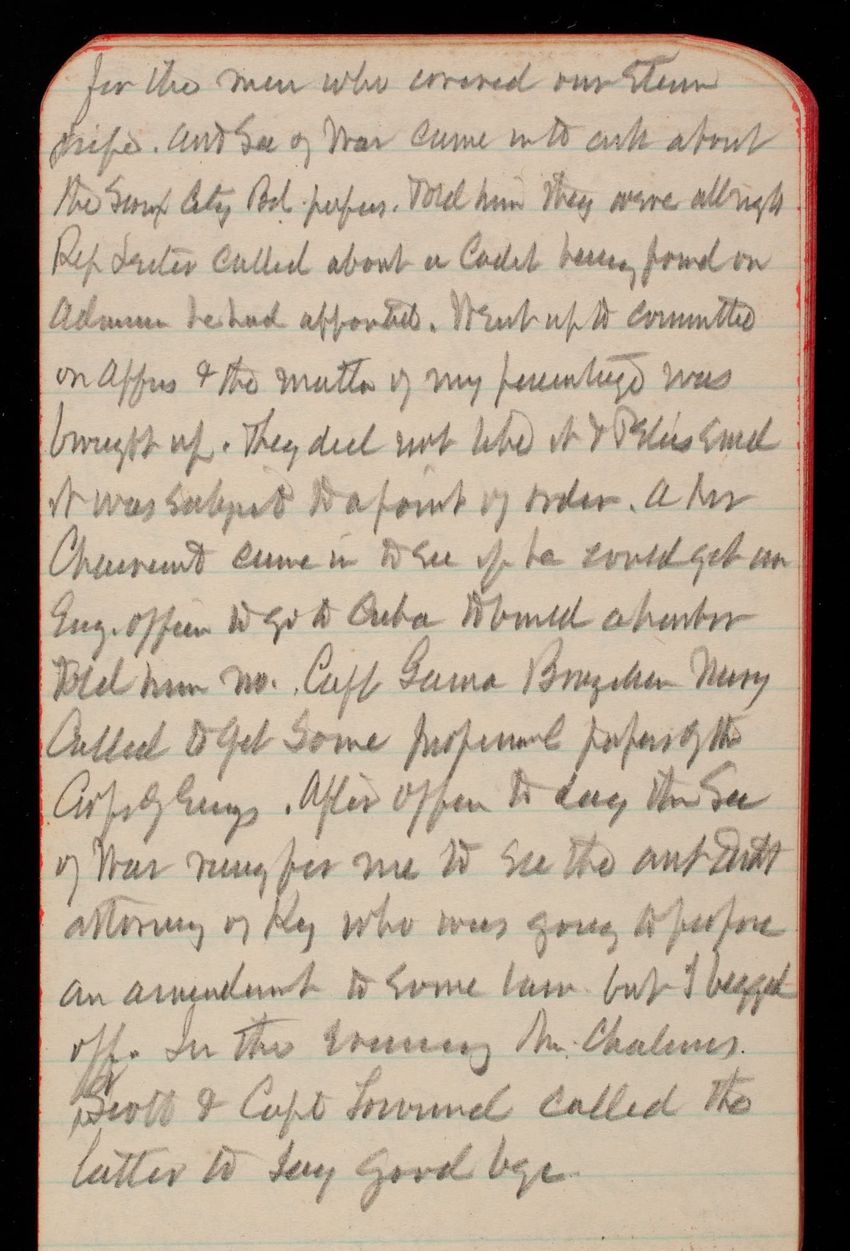 for the men who covered our steam
pipe. Asst Sec of War came in to ask about
the Sioux City Bd. papers. Told him they were all right
Rep Lester called about a Cadet being found on
he had appointed. Went up to committee
on Affrs & the matter of my percentage was
brought up. They did not like it & said
it was subject to a point of order. A Mr
came in to see if he could get an
Eng. officer to go to Cuba to build a harbor
Told him no. Capt Gama Brazilian Navy
Called to get some professional papers of the
Corps of Engrs. After office to day the Sec
of War rang for me to see the asst Dist
attorney of Ky who was going to prepare
an amendment to some law but I begged
off. In the evening Mr. Chalmers.
Scott & Capt called the
latter to say good bye.